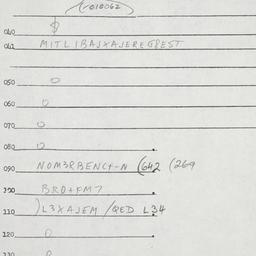 r010062
040 $
041 MITLIBAJXAJEREGPEST
050 0
060 0
070 0
080 0
090 NOM3RBENCT-N (642 (269
100 BRD+FM7
110 )L3XAJEM/QED L34
120 0
130 0